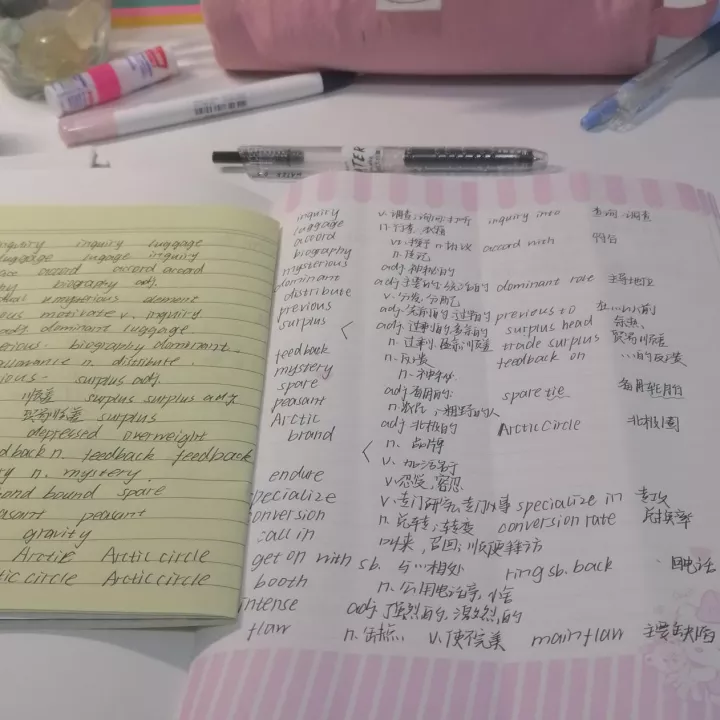 inquiry inquiry luggage
luggage lugage inquiry
accord accord accord
biography adj.
mysterious element
motivate v. inquiry
adj. dominant luggage
biography dominant
allowance n. distribute.
surplus adj.
顺差 surplus surplus adj
贸易顺差 surplus
depressed overweight
feedback n. feedback feedback
n. mystery
bound spare
peasant peasant
gravity
Arctic Arctic circle
Arctic circle Arctic circle
inquiry v. 调查;询问;打听 inquiry into 查问,调查
luggage n. 行李,
accord v. n. 协议 accord with 符合
biography n. 传记
mysterious adj 神秘的
dominant adj 主要的; dominant role 主导地位
distribute v. 分发,分配
previous adj. 先前的 previous to 在……以前
surplus adj. 过剩的,多余的 surplus head
n. 过剩,顺差 trade surplus 贸易顺差
feedback n. 反馈 feedback on ……的反馈
mystery n. 神秘
spare adj 备用的 spare tie 备用轮胎
peasant n. 农民;粗野的人
Arctic adj 北极的 Arctic Circle 北极圈
brand n. 品牌
v.
endure v. 忍受,容忍
specialize v. 专门研究,专门从事 specialize in 专攻
conversion n. 转变 conversion rate 转换率
call in 叫来,召回,顺便拜访
get on with sb. 与…相处 ring sb. back 回电话
booth n. 公用电话亭,
intense adj 强烈的,激烈的
flaw n. 缺点 v. 使不完美 main flaw 主要缺陷